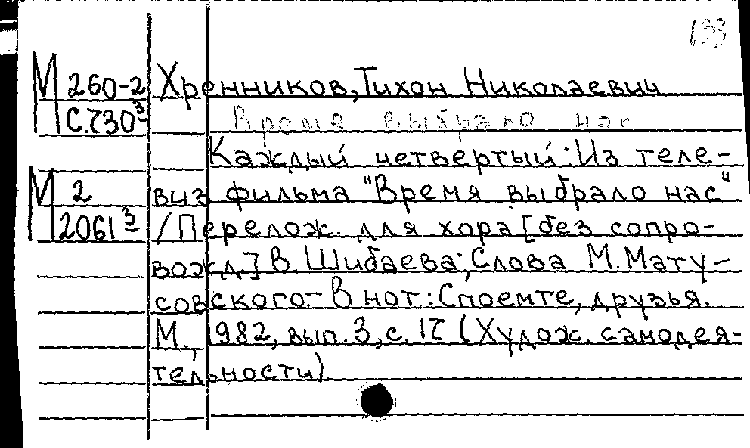 133
М 260-2 Хренников, Тихон Николаевич
С.730³ Время выбрало нас
Каждый четвертый: Из теле-
М 2 виз. фильма "Время выбрало нас"
2061³ /Перелож. для хора [без сопро-
вожд.] В. Шибаева; Слова М. Мату-
совского.- В нот.: Споемте, друзья.
М., 1982, вып. 3, с. 17 (Худож. самодея-
тельности)